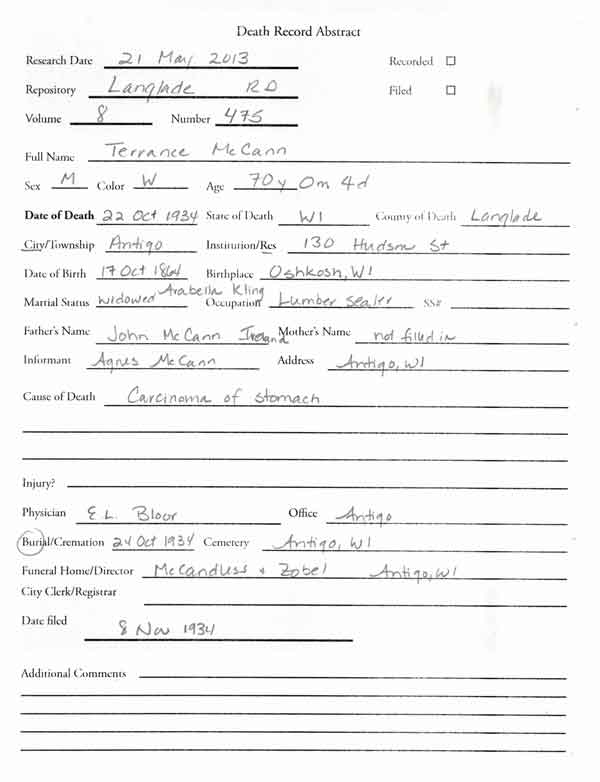 Death Record Abstract
Research Date 21 May 2013 Recorded ☐
Repository Langlade RD Filed ☐
Volume 8 Number 475
Full Name Terrance McCann
Sex M Color W Age 70y 0m 4d
Date of Death 22 Oct 1934 State of Death WI County of Death Langlade
City/Township Antigo Institution/Res 130 Hudson St
Date of Birth 17 Oct 1864 Birthplace Oshkosh, WI
Marital Status widowed Arabella Kling Occupation Lumber Sealer SS#
Father's Name John McCann Ireland Mother's Name not filled in
Informant Agnes McCann Address Antigo, WI
Cause of Death Carcinoma of stomach
Injury?
Physician E L. Bloor Office Antigo
Burial/Cremation 24 Oct 1934 Cemetery Antigo, WI
Funeral Home/Director McCandless + Zobel Antigo, WI
City Clerk/Registrar
Date filed 8 Nov 1934
Additional Comments